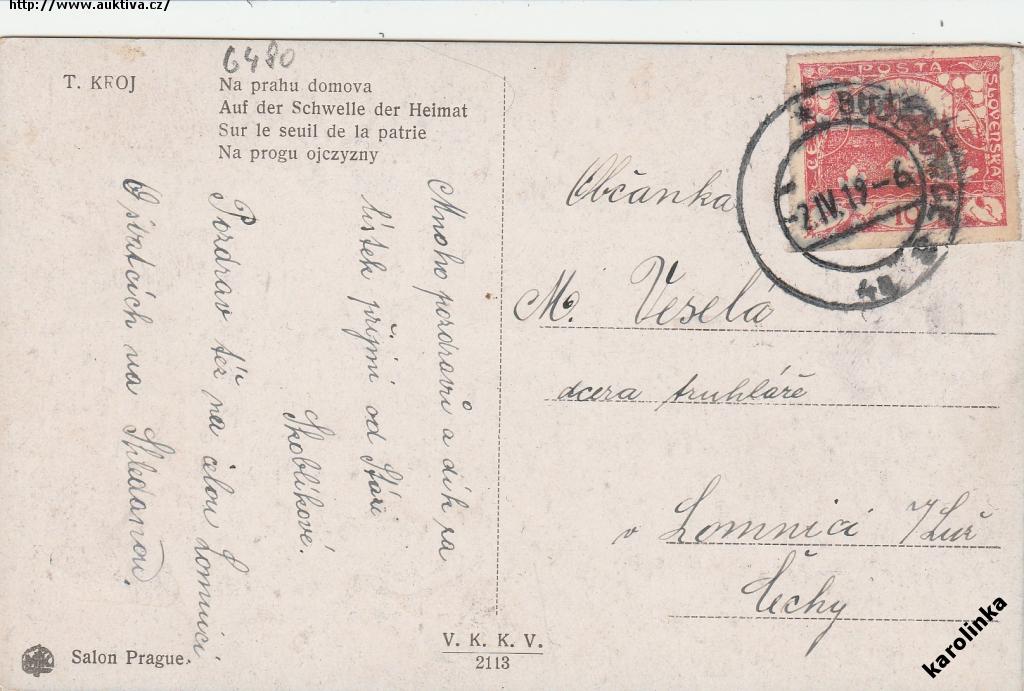 http://www.auktiva.cz/
6480
T. KROJ
Na prahu domova
Auf der Schwelle der Heimat
Sur le seuil de la patrie
Na progu ojczyzny
Mnoho pozdravů a dík za
lístek přijmi od
Skoblíkové.
Pozdrav též na celou Lomnici
na Shledanou.
POSTA
SLOVENSKA
10
2.IV.19-6
4a
Občanka
M. Veselá
dcera truhláře
v Lomnici
Čechy
V. K. K. V.
2113
Salon Prague
karolinka